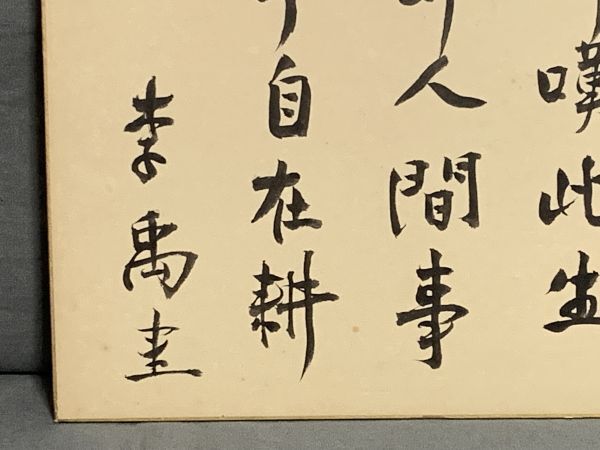 嘆此生
人間事
自在耕
李禹圭